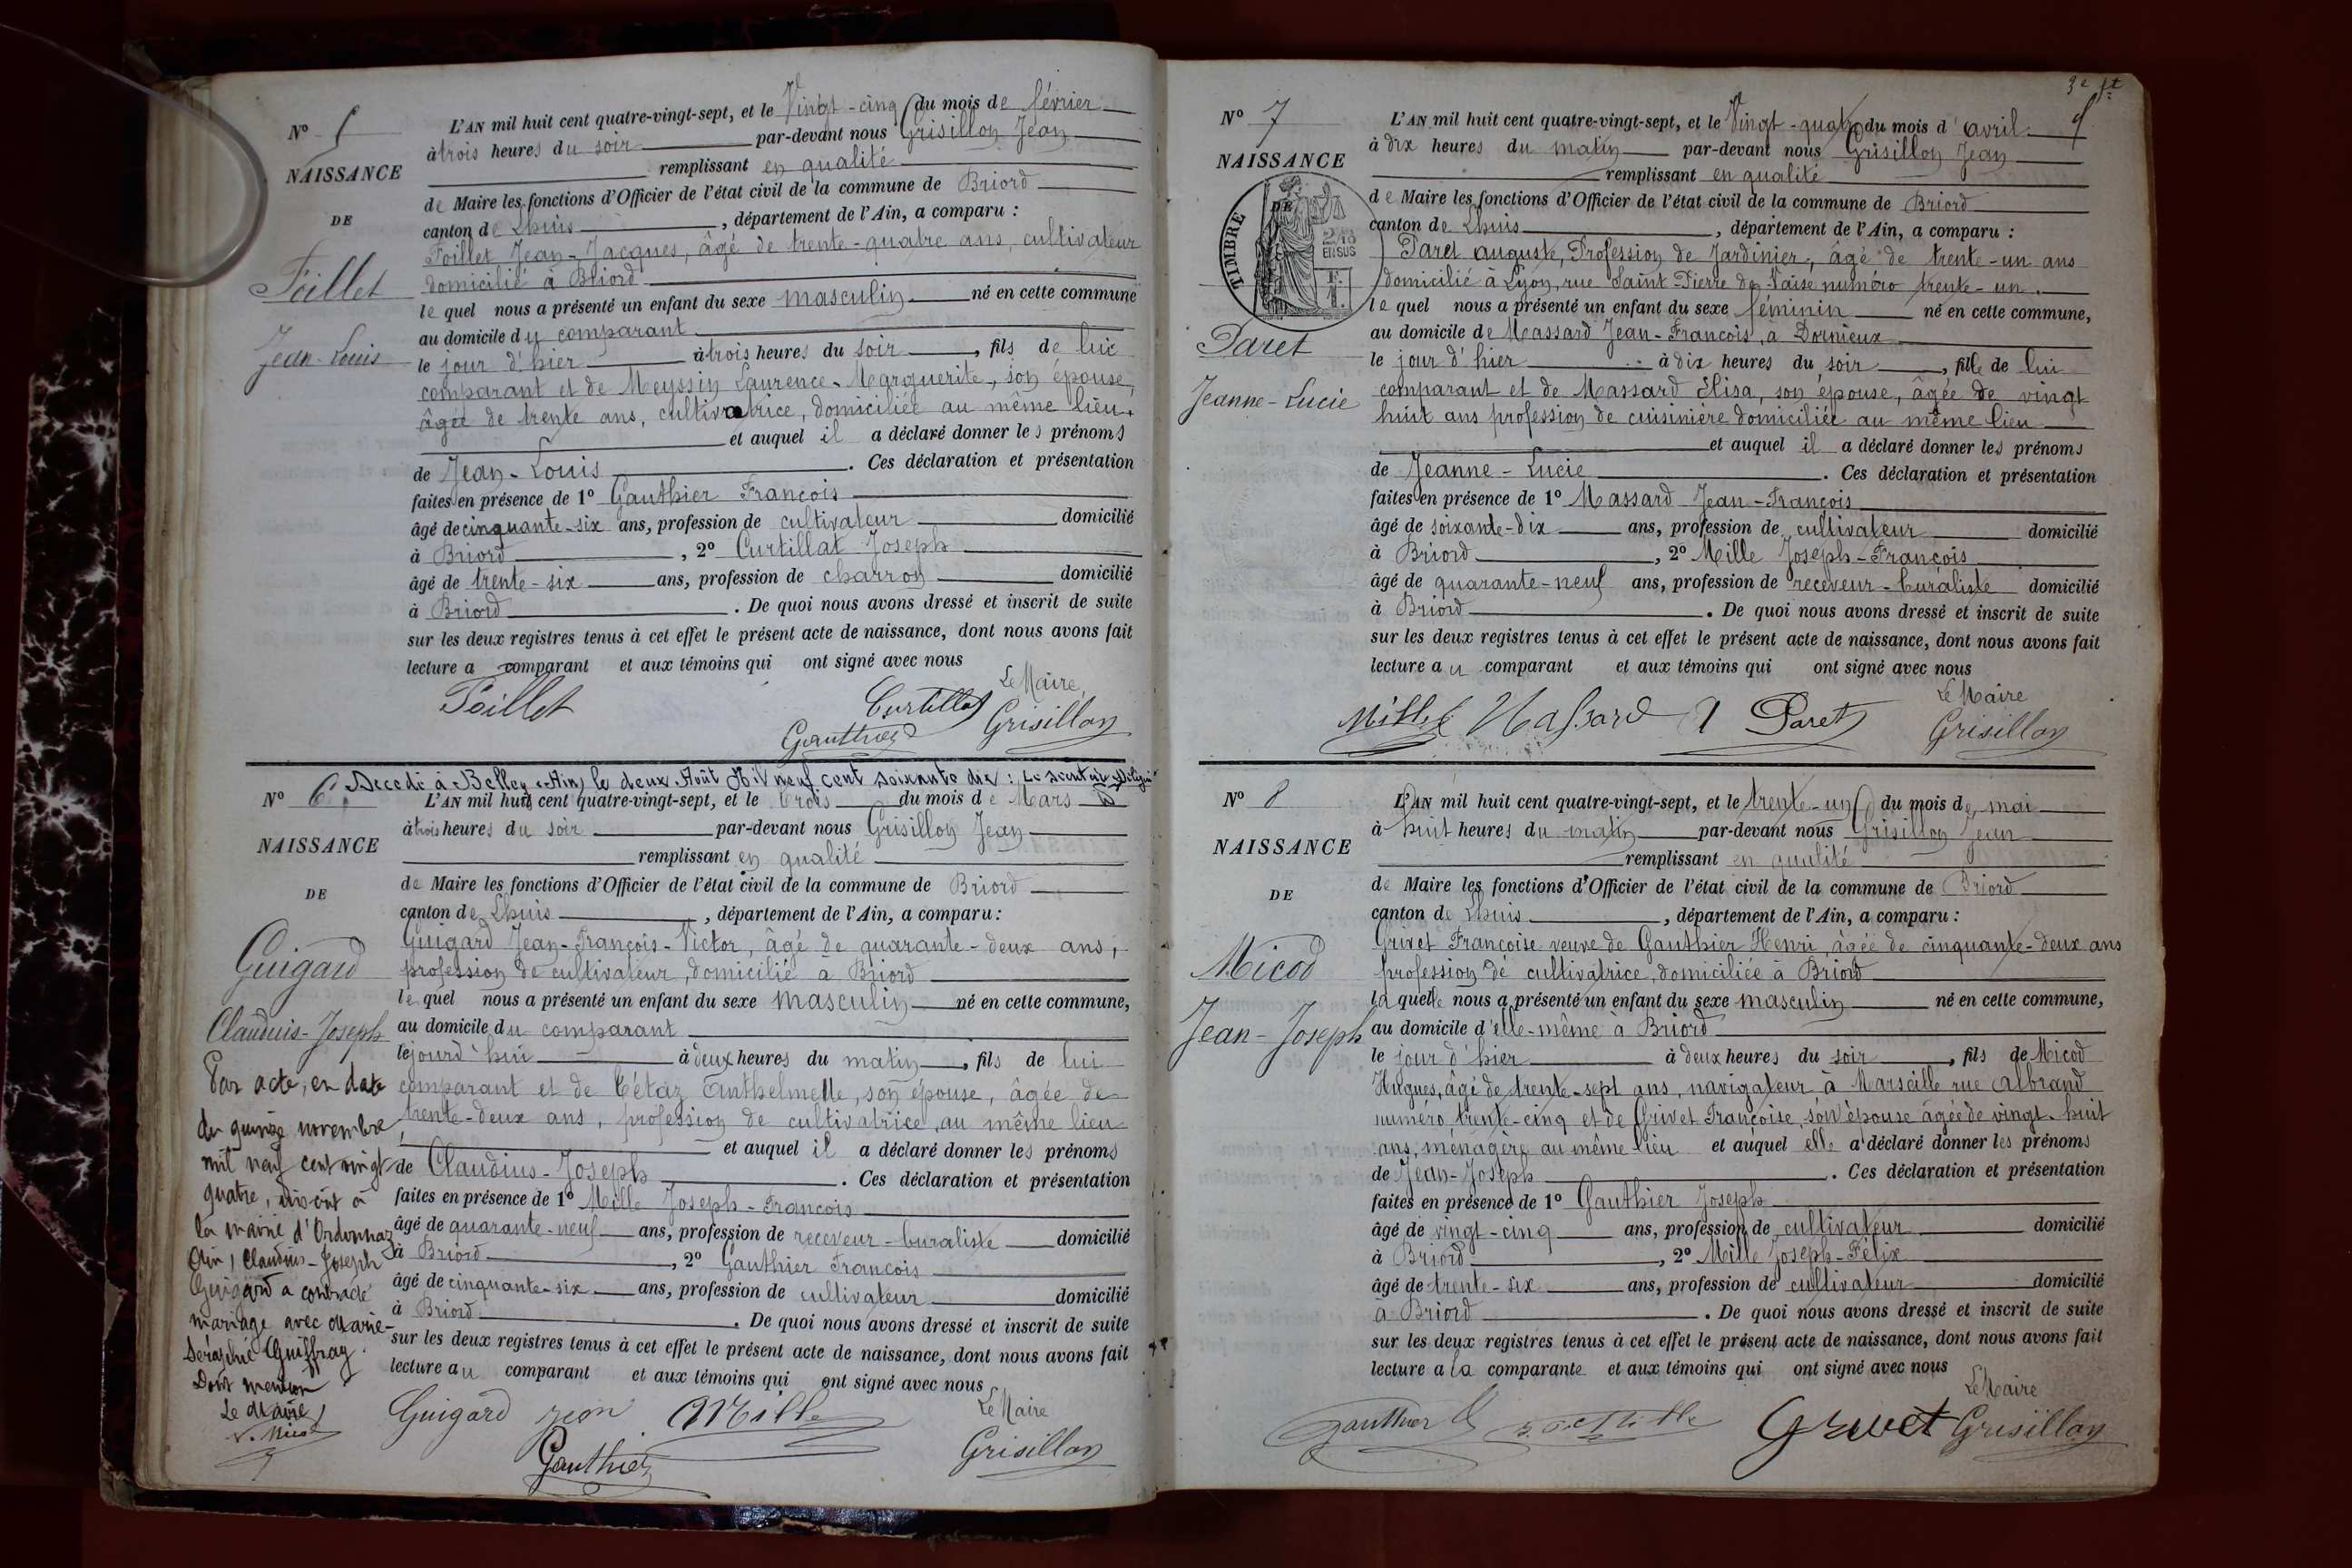 N° 5
NAISSANCE
DE
Poillet
Jean-Louis
L'AN mil huit cent quatre-vingt-sept, et le Vingt-cinq du mois de février
à trois heures du soir par-devant nous Grisillon Jean
remplissant en qualité
de Maire les fonctions d'Officier de l'état civil de la commune de Briord
canton de Lhuis, département de l'Ain, a comparu :
Poillet Jean-Jacques, âgé de trente-quatre ans, cultivateur
domicilié à Briord
lequel nous a présenté un enfant du sexe masculin né en cette commune
au domicile du comparant
le jour d'hier à trois heures du soir, fils de lui
comparant et de Meyssin Laurence-Marguerite, son épouse,
âgée de trente ans, cultivatrice, domiciliée au même lieu.
et auquel il a déclaré donner les prénoms
de Jean-Louis. Ces déclaration et présentation
faites en présence de 1° Gauthier François
âgé de cinquante-six ans, profession de cultivateur domicilié
à Briord, 2° Curtillat Joseph
âgé de trente-six ans, profession de charron domicilié
à Briord. De quoi nous avons dressé et inscrit de suite
sur les deux registres tenus à cet effet le présent acte de naissance, dont nous avons fait
lecture a comparant et aux témoins qui ont signé avec nous
Le Maire
Poillet Curtillat Grisillon
Gauthier
Decedé à Belley (Ain) le deux Août Mil neuf cent soixante dix :
N° 6
NAISSANCE
DE
Guigard
Claudius-Joseph
Par acte, en date
du quinze novembre
mil neuf cent vingt
quatre, inscrit à
la mairie d'Ordonnaz
Ain, Claudius-Joseph
Guigard a contracté
mariage avec Marie-
Séraphie Guiffray.
Dont mention
Le Maire,
L'AN mil huit cent quatre-vingt-sept, et le trois du mois de Mars
à trois heures du soir par-devant nous Grisillon Jean
remplissant en qualité
de Maire les fonctions d'Officier de l'état civil de la commune de Briord
canton de Lhuis, département de l'Ain, a comparu :
Guigard Jean-François-Victor, âgé de quarante-deux ans,
profession de cultivateur, domicilié à Briord
lequel nous a présenté un enfant du sexe masculin né en cette commune,
au domicile du comparant
le jourd'hui à deux heures du matin, fils de lui
comparant et de Cétaz Anthelmette, son épouse, âgée de
trente-deux ans, profession de cultivatrice, au même lieu
et auquel il a déclaré donner les prénoms
de Claudius-Joseph. Ces déclaration et présentation
faites en présence de 1° Mille Joseph-François
âgé de quarante-neuf ans, profession de receveur-buraliste domicilié
à Briord, 2° Gauthier François
âgé de cinquante-six ans, profession de cultivateur domicilié
à Briord. De quoi nous avons dressé et inscrit de suite
sur les deux registres tenus à cet effet le présent acte de naissance, dont nous avons fait
lecture au comparant et aux témoins qui ont signé avec nous
Le Maire
Guigard Mille Grisillon
Gauthier
N° 7
NAISSANCE
DE
TIMBRE
2/10 EN SUS
Paret
Jeanne-Lucie
L'AN mil huit cent quatre-vingt-sept, et le Vingt-quatre du mois d'avril
à dix heures du matin par-devant nous Grisillon Jean
remplissant en qualité
de Maire les fonctions d'Officier de l'état civil de la commune de Briord
canton de Lhuis, département de l'Ain, a comparu :
Paret auguste, Profession de Jardinier, âgé de trente-un ans
domicilié à Lyon, rue Saint-Pierre de Vaise numéro trente-un.
lequel nous a présenté un enfant du sexe féminin né en cette commune,
au domicile de Massard Jean-François, à Dornieux
le jour d'hier à dix heures du soir, fille de lui
comparant et de Massard Élisa, son épouse, âgée de vingt
huit ans profession de cuisinière domiciliée au même lieu
et auquel il a déclaré donner les prénoms
de Jeanne-Lucie. Ces déclaration et présentation
faites en présence de 1° Massard Jean-François
âgé de soixante-dix ans, profession de cultivateur domicilié
à Briord, 2° Mille Joseph-François
âgé de quarante-neuf ans, profession de receveur-buraliste domicilié
à Briord. De quoi nous avons dressé et inscrit de suite
sur les deux registres tenus à cet effet le présent acte de naissance, dont nous avons fait
lecture au comparant et aux témoins qui ont signé avec nous
Le Maire
Mille Massard A Paret Grisillon
N° 8
NAISSANCE
DE
Micod
Jean-Joseph
L'AN mil huit cent quatre-vingt-sept, et le trente-un du mois de mai
à huit heures du matin par-devant nous Grisillon Jean
remplissant en qualité
de Maire les fonctions d'Officier de l'état civil de la commune de Briord
canton de Lhuis, département de l'Ain, a comparu :
Grivet Françoise veuve de Gauthier Henri, âgée de cinquante-deux ans
profession de cultivatrice, domiciliée à Briord
laquelle nous a présenté un enfant du sexe masculin né en cette commune,
au domicile d'elle-même à Briord
le jour d'hier à deux heures du soir, fils de Micod
Hugues, âgé de trente-sept ans, navigateur à Marseille rue Albrand
numéro trente-cinq et de Grivet Françoise, son épouse âgée de vingt-huit
ans, ménagère au même lieu et auquel elle a déclaré donner les prénoms
de Jean-Joseph. Ces déclaration et présentation
faites en présence de 1° Gauthier Joseph
âgé de vingt-cinq ans, profession de cultivateur domicilié
à Briord, 2° Mille Joseph-Félix
âgé de trente-six ans, profession de cultivateur domicilié
à Briord. De quoi nous avons dressé et inscrit de suite
sur les deux registres tenus à cet effet le présent acte de naissance, dont nous avons fait
lecture a la comparante et aux témoins qui ont signé avec nous
Le Maire
Gauthier Mille Grivet Grisillon